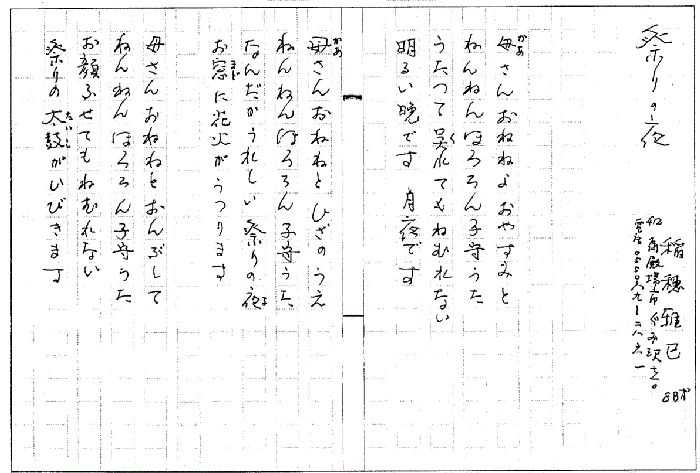 祭りの夜
稲穂雅己
母さんおねねよおやすみと
ねんねんほろろん子守うた
うたって呉れてもねむれない
明るい晩です 月夜です
母さんおねねと ひざのうえ
ねんねんほろろん子守うた
なんだかうれしい祭りの夜
お窓に花火がうつります
母さんおねねとおんぶして
ねんねんほろろん子守うた
お顔ふせてもねむれない
祭りの太鼓がひびきます